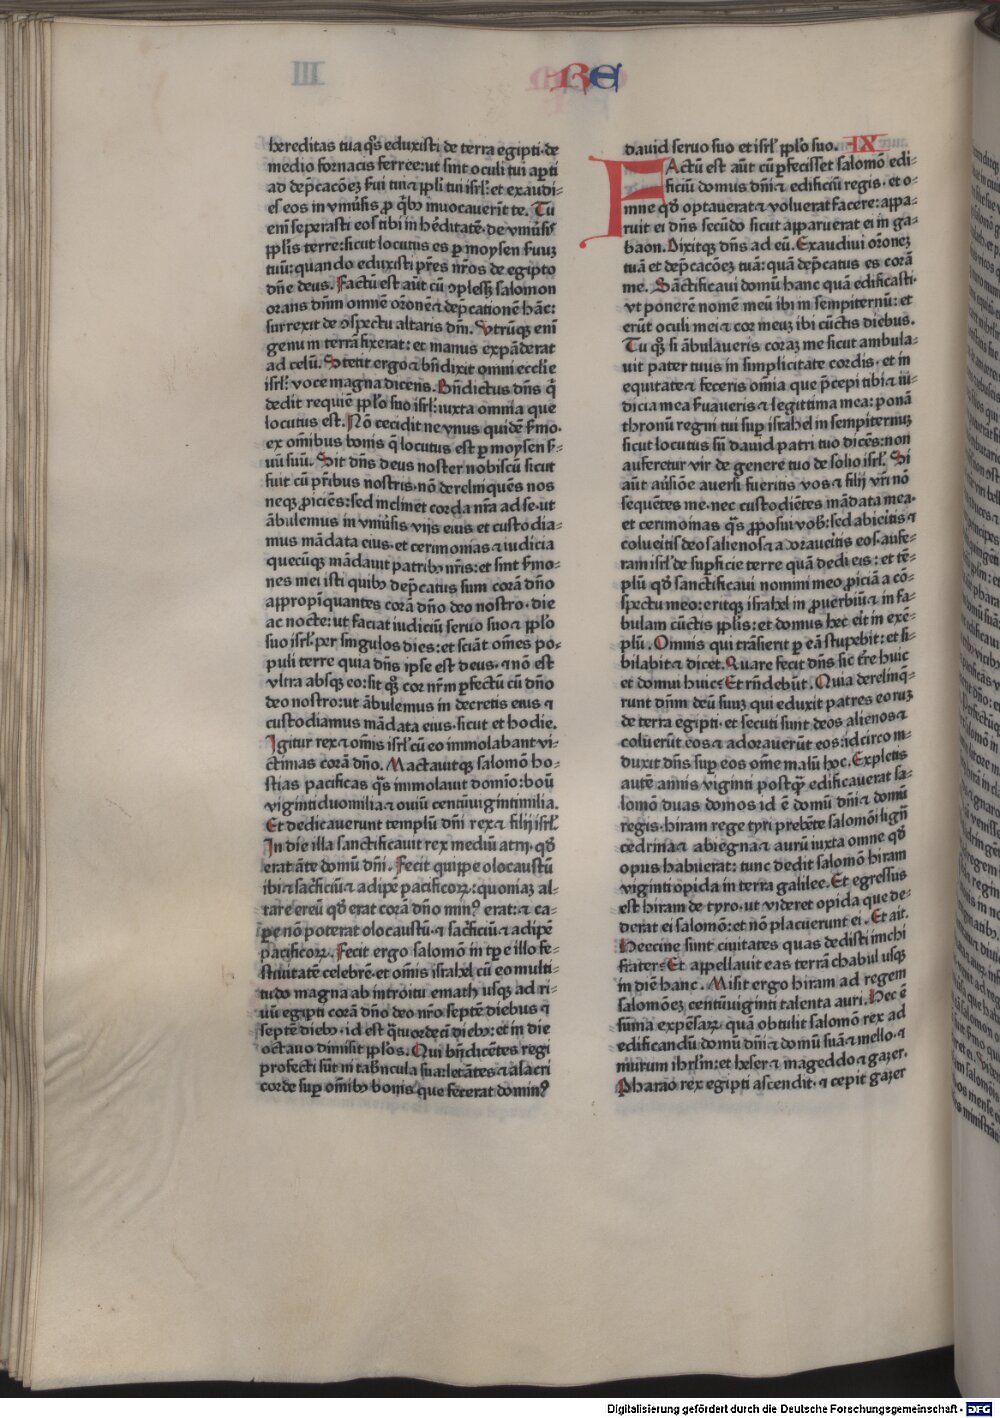 RE
hereditas tua qͦs eduxisti de terra egipti·de
medio fornacis ferree:ut sint oculi tui apti
ad dep̄cacōeꝫ ẜui tui ⁊ ppl̓i tui isrl̓:et exaudi⸗
es eos in vniu̓sis ꝓ q̄bꝫ inuocauerīt te. Tu
eni̅ seperasti eos tibi in he̓ditatē·de vniu̓sis
ppl̓is terre:sicut locutus es ꝑ moysen ẜuuꝫ
tuū:quando eduxisti pr̄es nr̄os de egipto
dn̄e deus. Factū est aūt cū ↄpless̓ salomon
orans dn̄m omnē or̄onē ⁊ dep̄cationē hāc:
surrexit de ↄspectu altaris dn̄i. Vtrūqꝫ eni̅
genu in terrā fixerat:et manus expāderat
ad celū. Stetit ergo ⁊ bn̄dixit omni ecclie
isrl̓:voce magna dicens. Bn̄dictus dn̄s q̄
dedit requiē ppl̓o suo isrl̓:iuxta omnia que
locutus est. Nō cecidit ne vnus quidē ẜmo·
ex om̄ibus bonis q̄ locutus est ꝑ moysen ẜ⸗
uū suū. Sit dn̄s deus noster nobiscū sicut
fuit cū pr̄ibus nostris·nō derelinquēs nos
neqꝫ ꝓiciēs:sed inclinet corda nr̄a ad se·ut
ābulemus in vniu̓sis vijs eius et custodia⸗
mus mādata eius·et cerimonias ⁊ iudicia
quecūqꝫ mādauit patribꝫ nr̄is:et sint ẜmo⸗
nes mei isti quibꝫ dep̄catus sum corā dn̄o
appropīquantes corā dn̄o deo nostro·die
ac nocte:ut faciat iudiciū seruo suo ⁊ ppl̓o
suo isrl̓·per singulos dies:et sciāt om̄es po⸗
puli terre quia dn̄s ipse est deus·⁊ nō est
vltra absqꝫ eo:sit qͦꝫ cor nr̄m ꝑfectū cū dn̄o
deo nostro:ut ābulemus in decretis eius ⁊
custodiamus mādata eius·sicut et hodie.
Igitur rex ⁊ om̄is isrl̓ cū eo immolabant vi⸗
ctimas corā dn̄o. Mactauitqꝫ salomō ho⸗
stias pacificas q̄s immolauit domīo:boū
viginti duo milia ⁊ ouiū centū uiginti milia.
Et dedicauerunt templū dn̄i rex ⁊ filij isrl̓.
In die illa sanctificauit rex mediū atrij·qd̓
erat āte domū dn̄i. Fecit quippe olocaustū
ibi ⁊ sac̓ficiū ⁊ adipē pacificoꝝ:quoniaꝫ al⸗
tare ereū qd̓ erat corā dn̄o min⁹ erat:⁊ ca⸗
pe nō poterat olocaustū·⁊ sac̓ficiū ⁊ adipē
pacificoꝝ. Fecit ergo salomō in tp̄e illo fe⸗
stiuitatē celebrē·et om̄is israhel cū eo multi⸗
tudo magna ab introitu emath usqꝫ ad ri⸗
uū egipti corā dn̄o deo nr̄o septē diebus ⁊
septē diebꝫ·id est q̄tuordecī diebꝫ:et in die
octauo dimisit ppl̓os. Qui bn̄dicētes regi
profecti sūt in tab̓nacula sua:letātes ⁊ alacri
corde sup̄ om̄ibꝫ bonis que fecerat domin⁹
dauid seruo suo et isrl̓ ppl̓o suo. IX
FActū est aūt cū ꝑfecisset salomō edi⸗
ficiū domus dn̄i ⁊ edificiū regis·et o⸗
mne qd̓ optauerat ⁊ voluerat facere:appa⸗
ruit ei dn̄s secūdo sicut apparuerat ei in ga⸗
baon. Dixitqꝫ dn̄s ad eū. Exaudiui or̄oneꝫ
tuā et dep̄cacōeꝫ tuā:quā dep̄catus es corā
me. Sāctificaui domū hanc quā edificasti·
vt ponerē nomē meū ibi in sempiternū:et
erūt oculi mei ⁊ cor meuꝫ ibi cūctis diebus.
Tu qͦꝫ si ābulaueris coraꝫ me sicut ambula⸗
uit pater tuus in simplicitate cordis·et in
equitate ⁊ feceris om̄ia que p̄cepi tibi ⁊ iu⸗
dicia mea ẜuaueris ⁊ legittima mea:ponā
thronū regni tui sup̄ israhel in sempiternuꝫ
sicut locutus sū dauid patri tuo dicēs:non
auferetur vir de genere tuo de solio isrl̓. Si
aūt au̓sióe auersi fueritis vos ⁊ filij vr̄i nō
sequētes me·nec custodiētes mādata mea·
et cerimoīas q̄s proposui vob̓:sed abieritis ⁊
colueritis deos alienos ⁊ adoraueritis eos·aufe⸗
ram isrl̓ de sup̄ficie terre quā dedi eis:et tē⸗
plū qd̓ sanctificaui nomini meo ꝓiciā a cō⸗
spectu meo:eritqꝫ israhel in ꝓuerbiū ⁊ in fa⸗
bulam cūctis ppl̓is:et domus hec erit in exē⸗
plū. Omnis qui trāsierit ꝑ eā stupebit:et si⸗
bilabit ⁊ dicet. Quare fecit dn̄s sic tr̄e huic
et domui huic? Et rn̄debūt. Quia derelinq̄⸗
runt dn̄m deū suuꝫ qui eduxit patres eoruꝫ
de terra egipti·et secuti sunt deos alienos ⁊
coluerūt eos ⁊ adorauerūt eos:idcirco in⸗
duxit dn̄s sup̄ eos om̄e malū hoc. Expletis
autē annis viginti postqͣ̄ edificauerat sa⸗
lomō duas domos id ē domū dn̄i ⁊ domū
regis·hiram rege tyri prebēte salomōi lign̄
cedrina ⁊ abiegna ⁊ aurū iuxta omne qd̓
opus habuerat:tunc dedit salomō hiram
viginti opida in terra galilee. Et egressus
est hiram de tyro·ut videret opida que de⸗
derat ei salomō:et nō placuerunt ei. Et ait.
Heccine sunt ciuitates quas dedisti michi
frater? Et appellauit eas terrā chabul usqꝫ
in diē hanc. Misit ergo hiram ad regem
salomōeꝫ centū uiginti talenta auri. Hec ē
sūma expēsaꝝ·quā obtulit salomō rex ad
edificandū domū dn̄i ⁊ domū suā ⁊ mello·⁊
murum ihrl̓m:et heser ⁊ mageddo ⁊ gazer.
Pharao rex egipti ascendit·⁊ cepit gazer
Digitalisierung gefördert durch die Deutsche Forschungsgemeinschaft - DFG